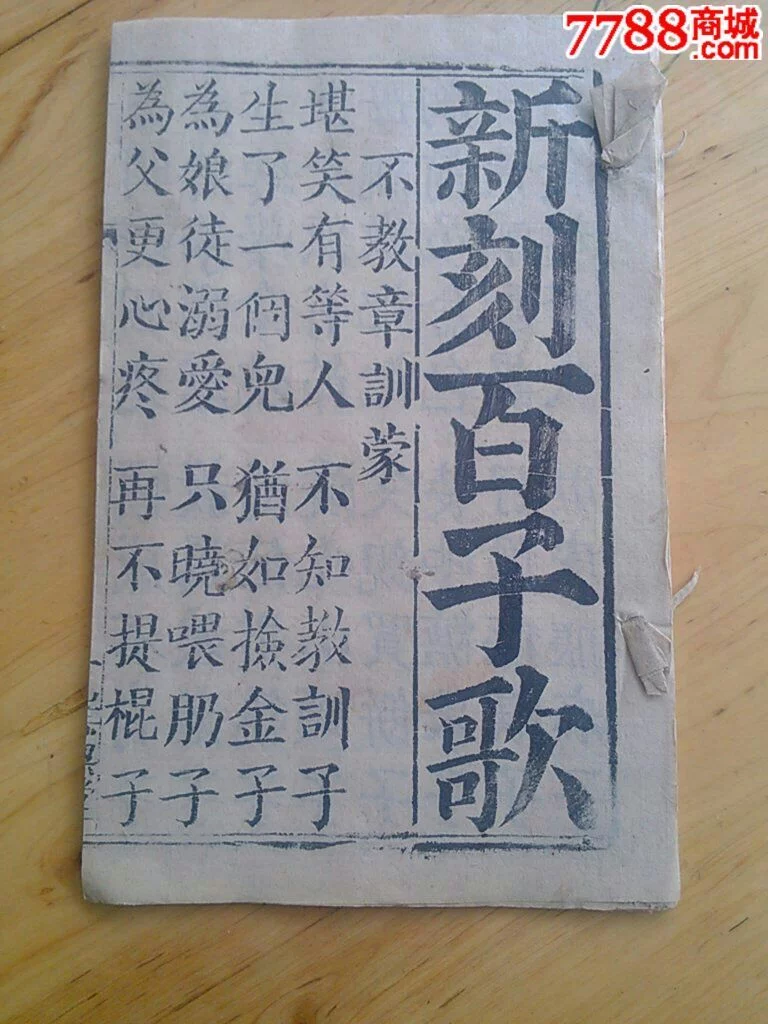 7788商城
.com
新刻百子歌
不教章訓蒙
堪笑有等人 不知教訓子
生了一個兒 猶如撿金子
為娘徒溺愛 只曉喂肭子
為父更心疼 再不提棍子